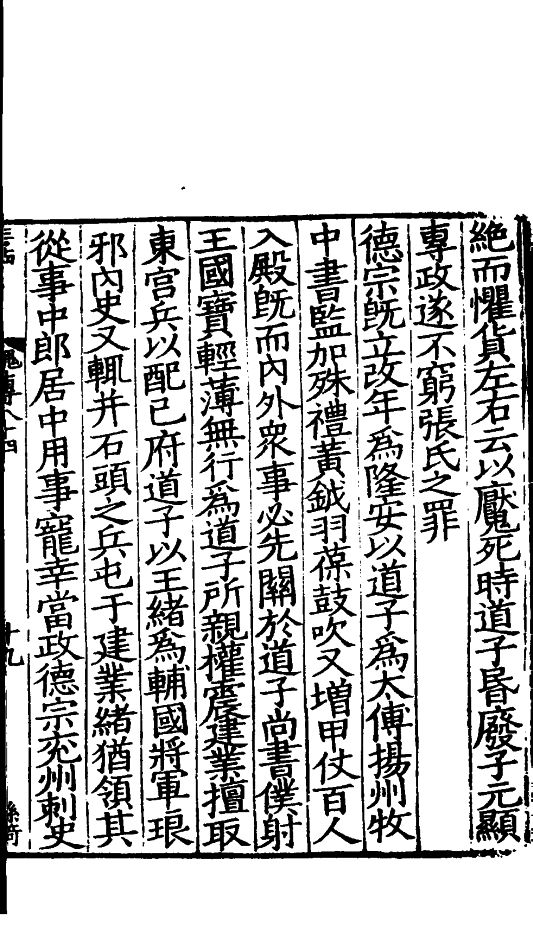 絶而懼貨左右云以魘死時道子昏廢子元顯
專政遂不窮張氏之罪
德宗旣立改年爲隆安以道子爲太傅揚州牧
中書監加殊禮黃鉞羽葆鼓吹又增甲仗百人
入殿旣而內外衆事必先關於道子尚書僕射
王國寶輕薄無行爲道子所親權震建業擅取
東宫兵以配己府道子以王緒爲輔國將軍琅
邪內史又輒并石頭之兵屯于建業緒猶領其
從事中郎居中用事寵幸當政德宗兖州刺史